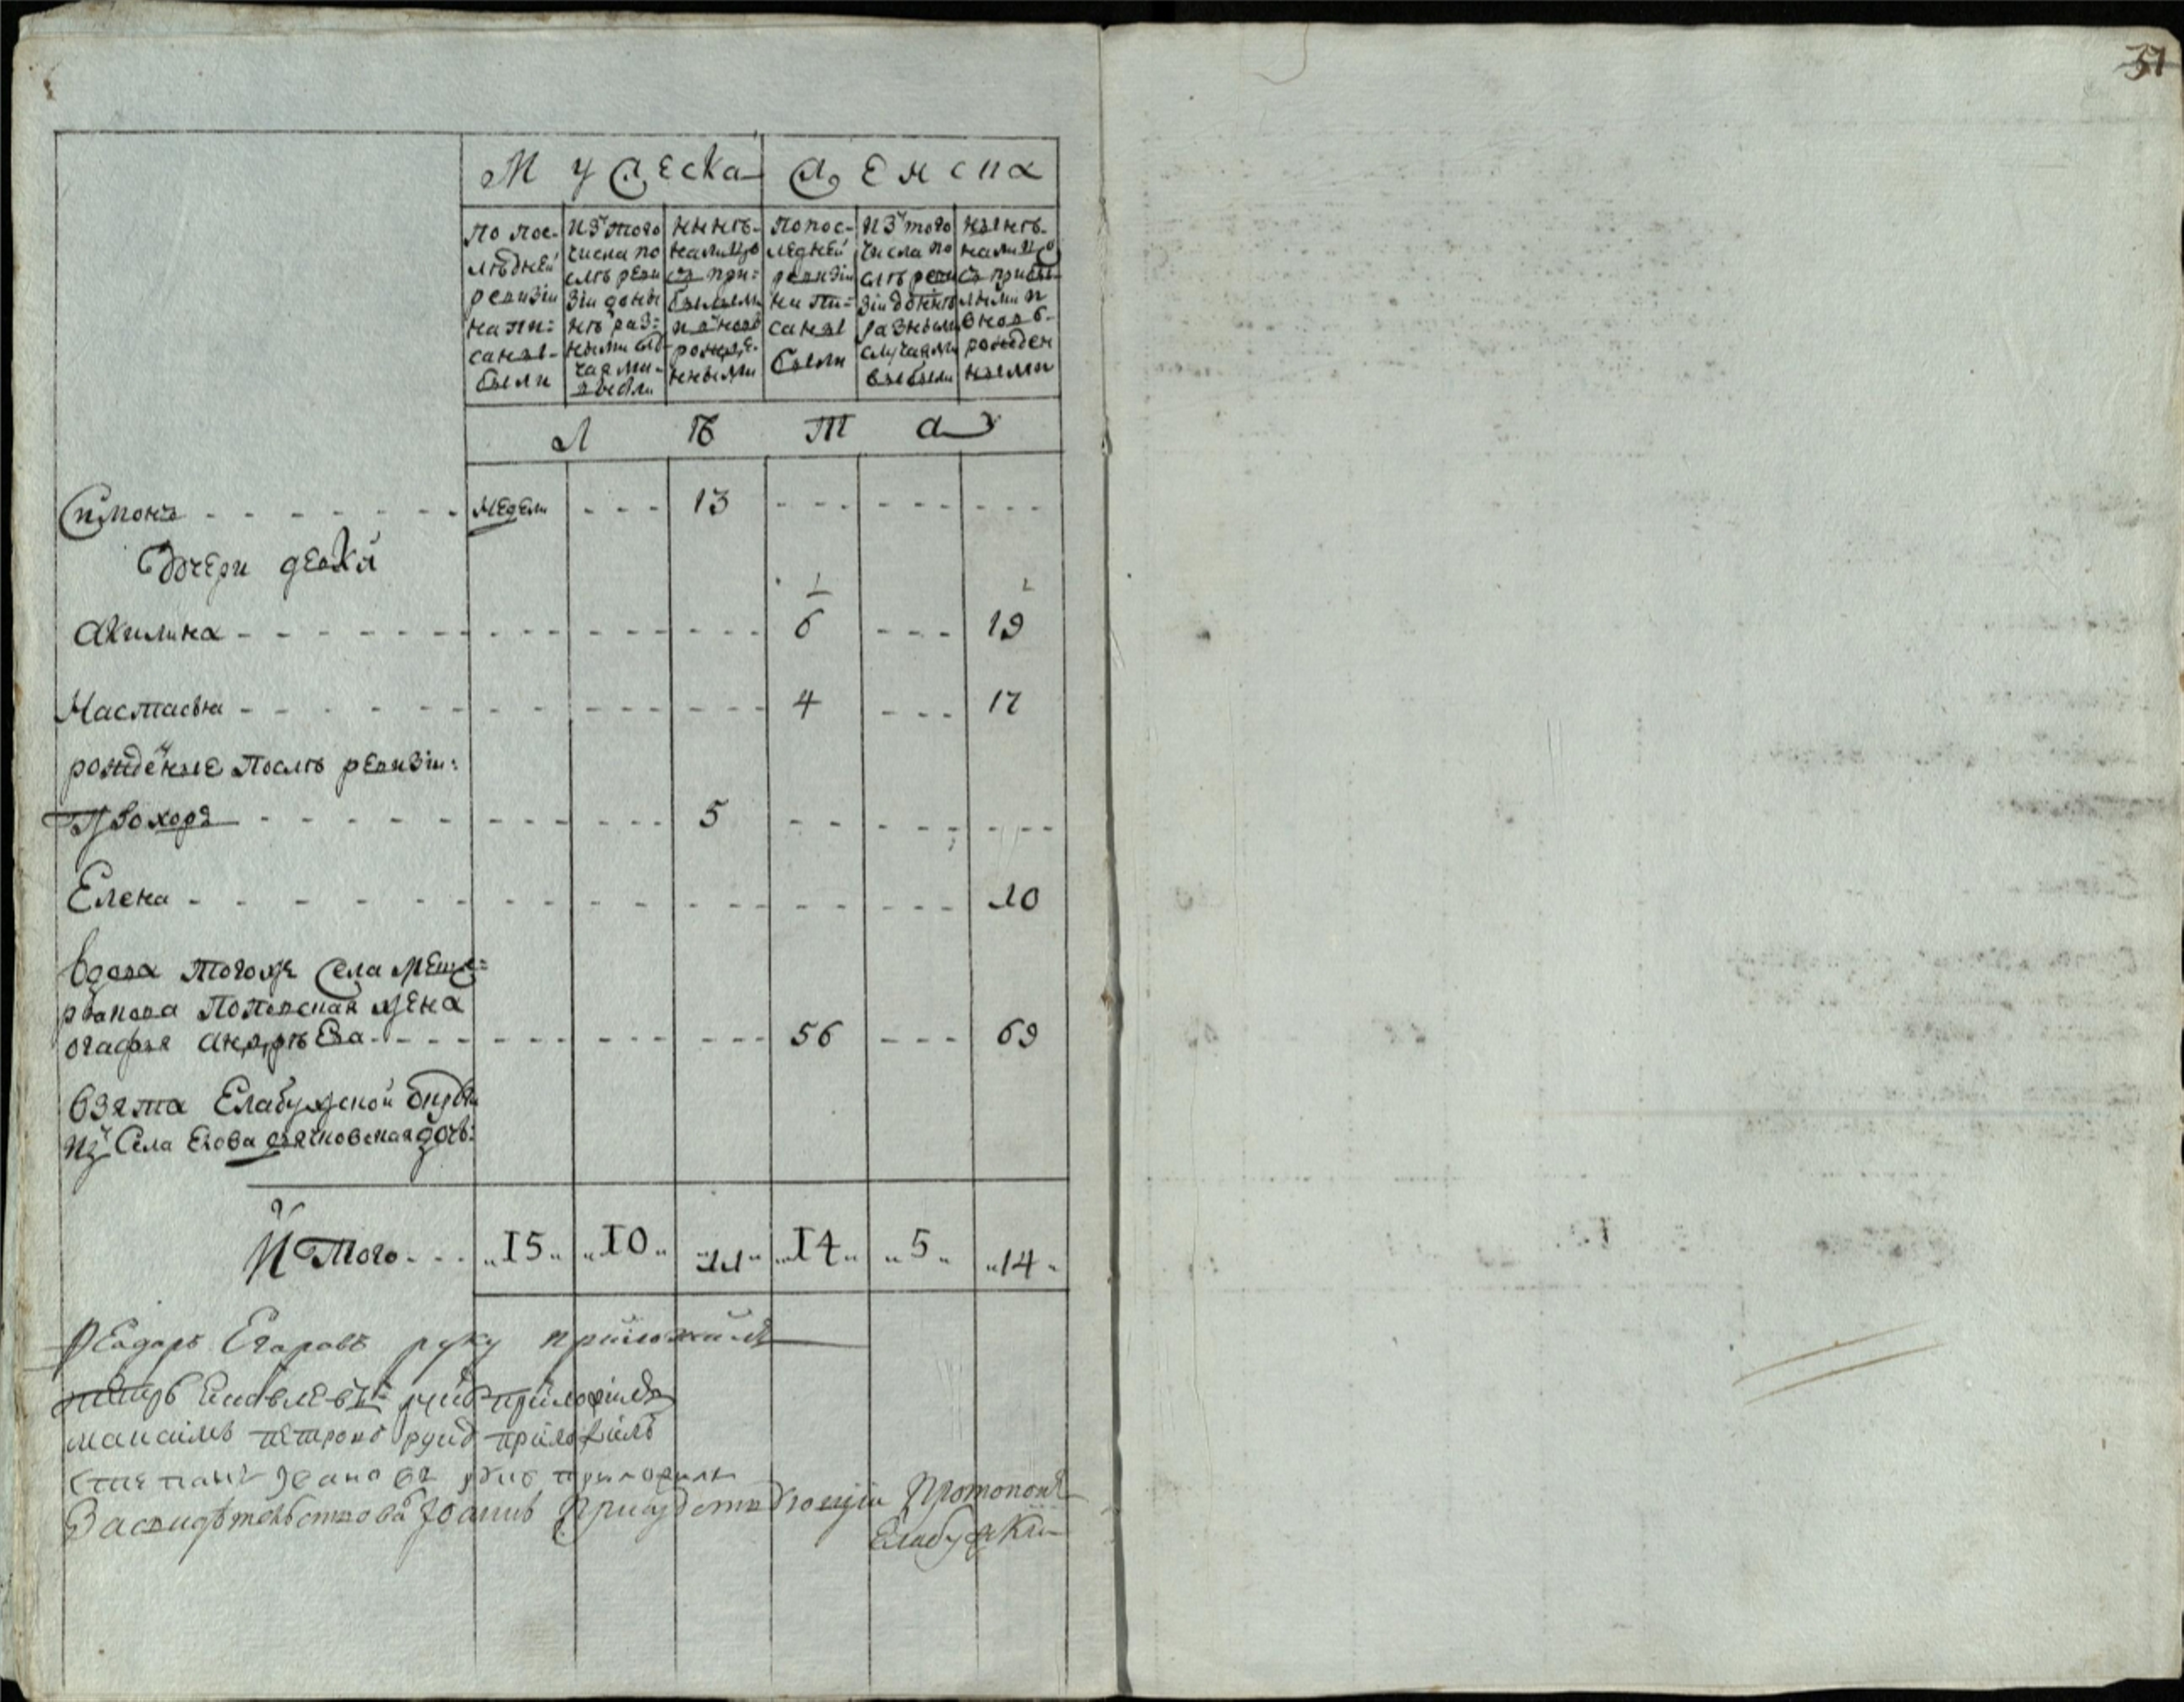 31
Мужеска Женска
По пос-
лѣдней
ревизіи
напи-
саны-
были
изъ того
числа по
слѣ реви
зіи до ны
нѣ раз-
ными слу
чаями-
выбыли
нынѣ-
налицо
съ при-
былыми
и вновь
рожде-
нными
По пос-
ледней
ревизіи
напи-
саны
были
изъ того
числа по
слѣ реви
зіи до нынѣ
разными
случаями
выбыли
нынѣ-
налицо
съ прибы-
лыми и
вновь-
рожден
ными
Л Ѣ Т А
Симонъ - - - - - - недели - - - 13 - - - - - - - - -
Дочери девки
1 2
Акилина - - - - - - - - - - - - - - - - 6 - - - 19
Настасья - - - - - - - - - - - - - - - - 4 - - - 17
рождённые послѣ ревизіи:
Прохоръ - - - - - - - - - - - - 5 - - - - - - - - -
Елена - - - - - - - - - - - - - - - - - - - - 10
вдова тогоже села меще-
рякова Поповская жена
огафья андрѣева - - - - - - - - - - - - 56 - - - 69
взята Елабужской округи
изъ Села Ехова дьячковская дочь:
Итого - - - „15„ „10„ „11„ „14„ „5„ „14„
Феодоръ Егаровъ руку приложилъ
Петръ Яковлевъ руку приложилъ
максимъ петровъ руку приложилъ
степанъ Ивановъ руку приложилъ
Засвидѣтельствова Іоаннъ Присудствующій Протопопъ
Елабужскій